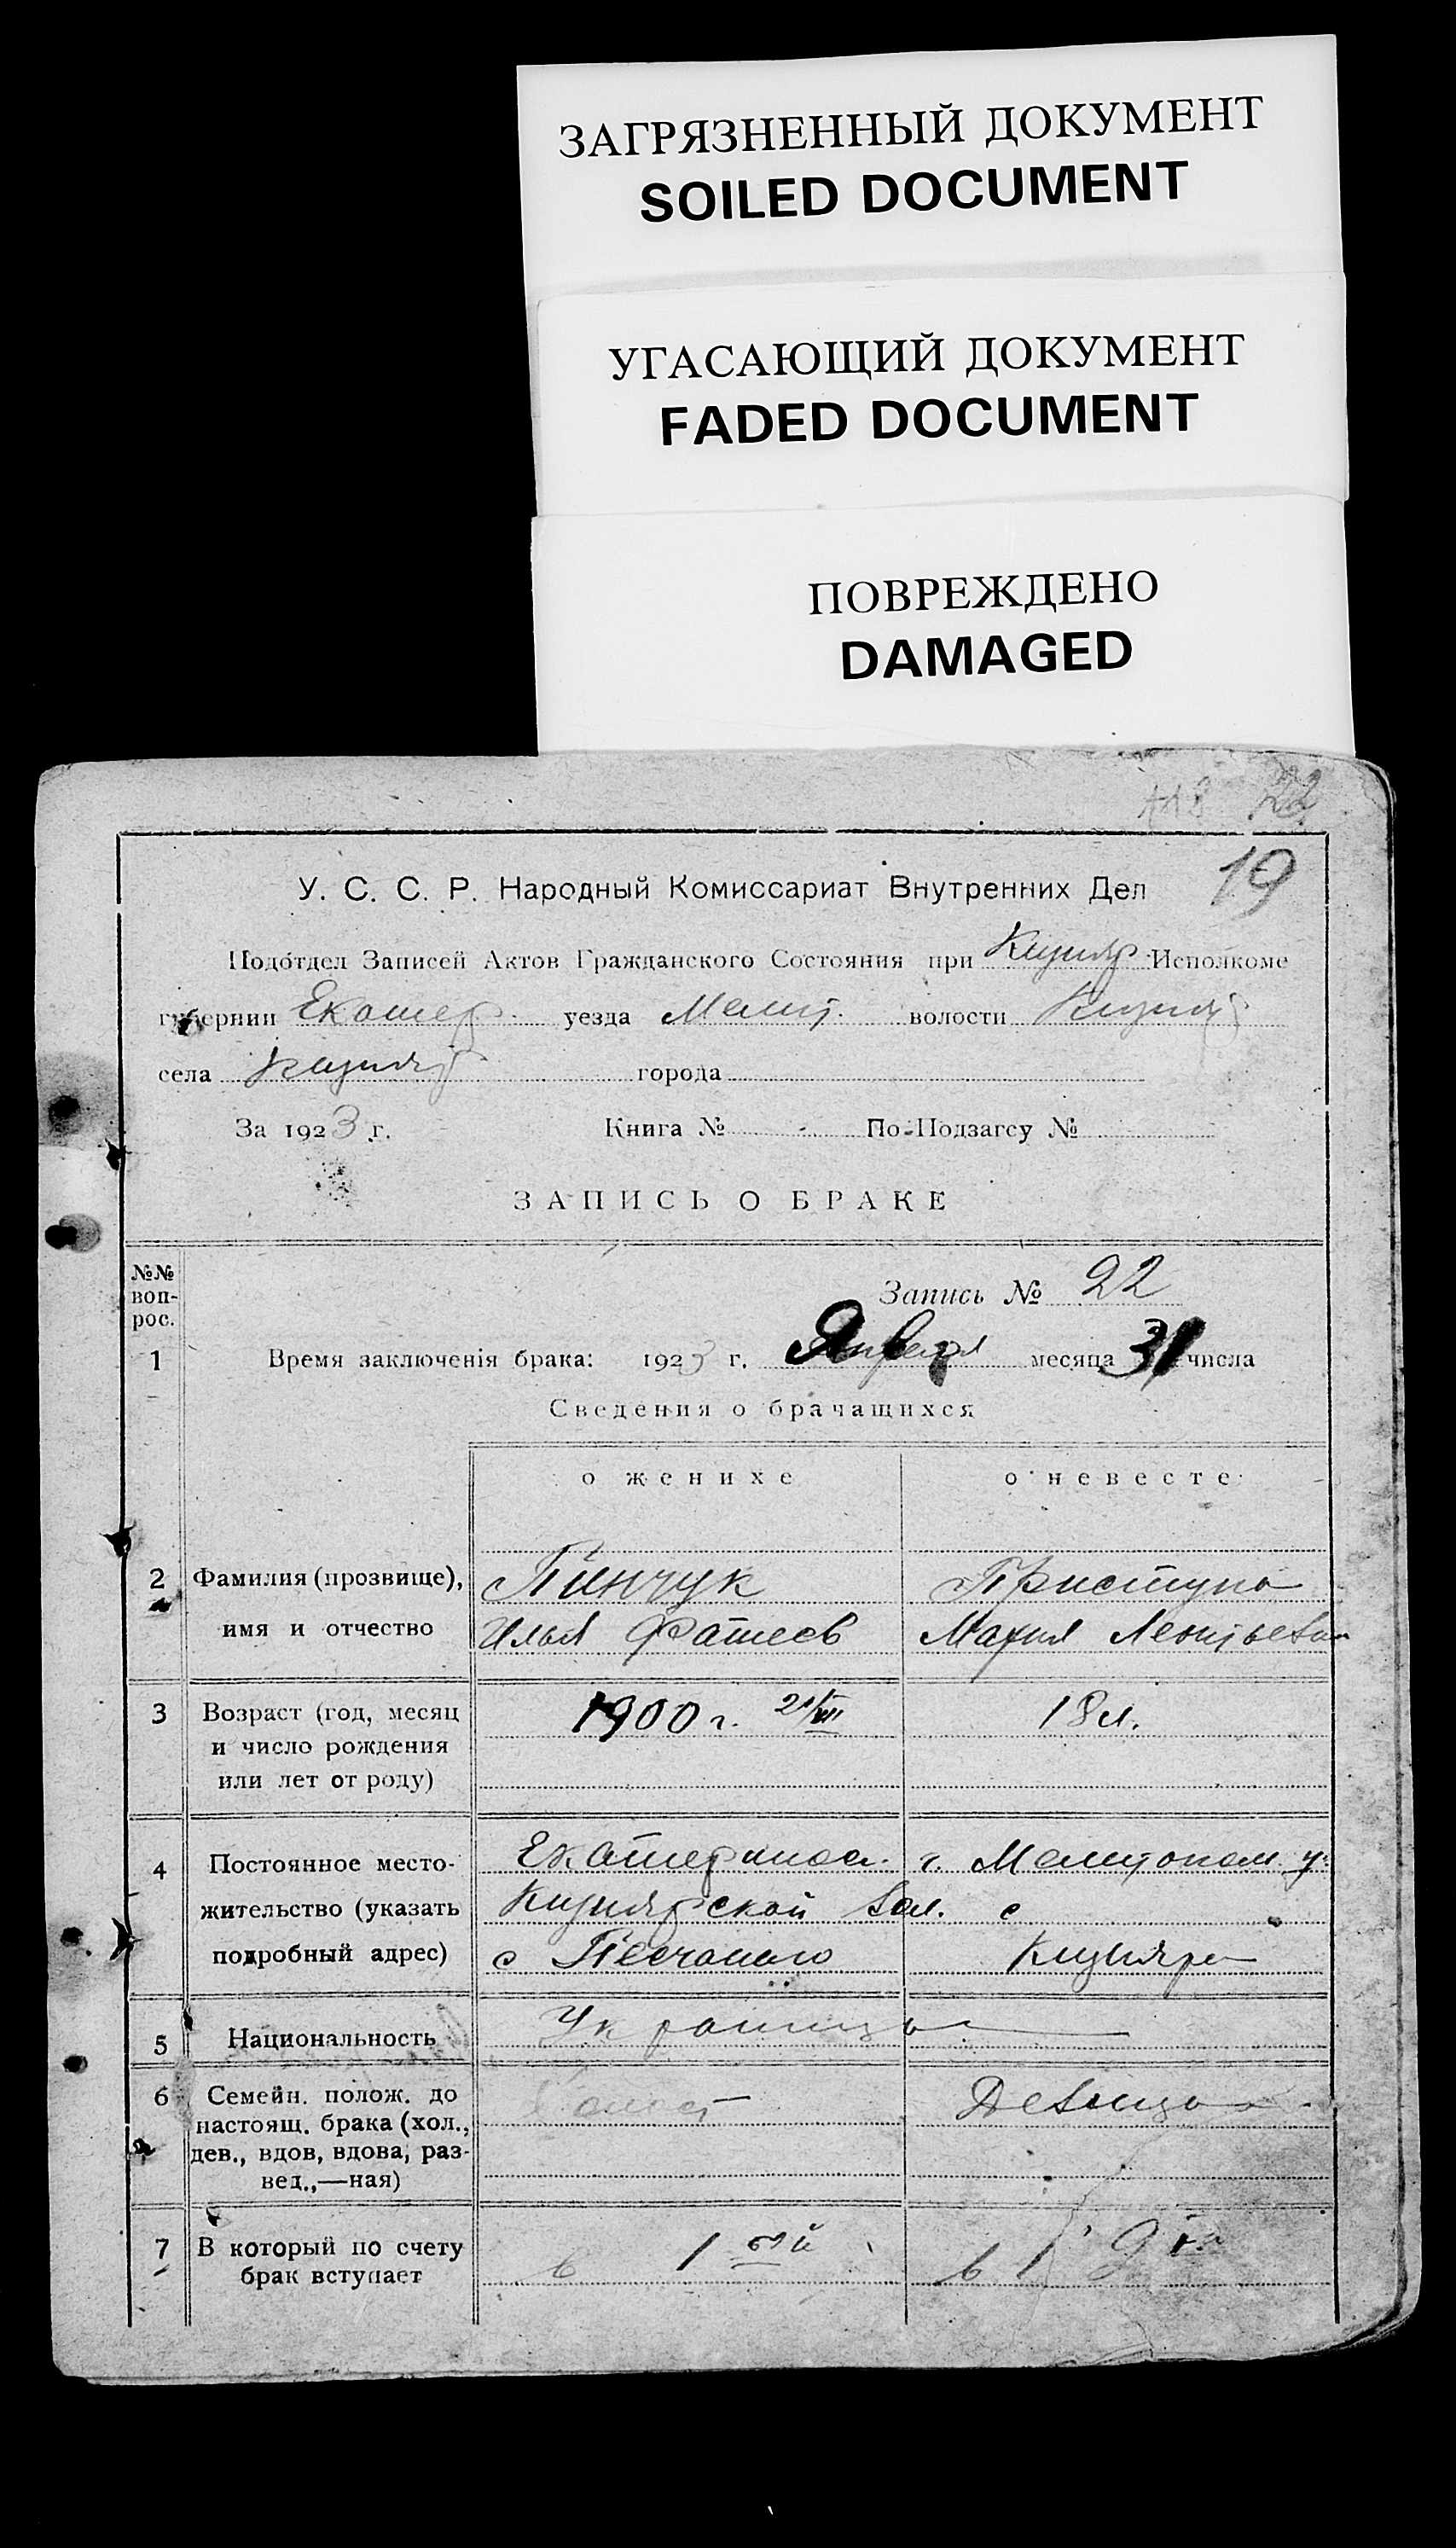 ЗАГРЯЗНЕННЫЙ ДОКУМЕНТ
SOILED DOCUMENT
УГАСАЮЩИЙ ДОКУМЕНТ
FADED DOCUMENT
ПОВРЕЖДЕНО
DAMAGED
22
19
У. С. С. Р. Народный Комиссариат Внутренних Дел
Подотдел Записей Актов Гражданского Состояния при Кизияр Исполкоме
губернии Екатер. уезда Мелит. волости Кизияр
села Кизияр города
За 1923 г. Книга № По-Подзагсу №
ЗАПИСЬ О БРАКЕ
№№ воп-рос.
Запись № 22
1 Время заключенія брака: 1923 г. месяца 31 числа
Сведения о брачащихся
о женихе о невесте
2 Фамилия (прозвище), Пинчук Приступа
имя и отчество Илья Фатеев Мария Леонтьевна
3 Возраст (год, месяц 1900 г. 21/VIII 18 л.
и число рождения
или лет от роду)
4 Постоянное место- Екатеринос. г. Мелитопол у.
жительство (указать Кизиярской вол. с
подробный адрес) с Песчаного Кизияра
5 Национальность Украинцы
6 Семейн. полож. до Холост Девица
настоящ. брака (хол.,
дев., вдов, вдова, раз-
вед.,—ная)
7 В который по счету в 1 ый в 1
брак вступает